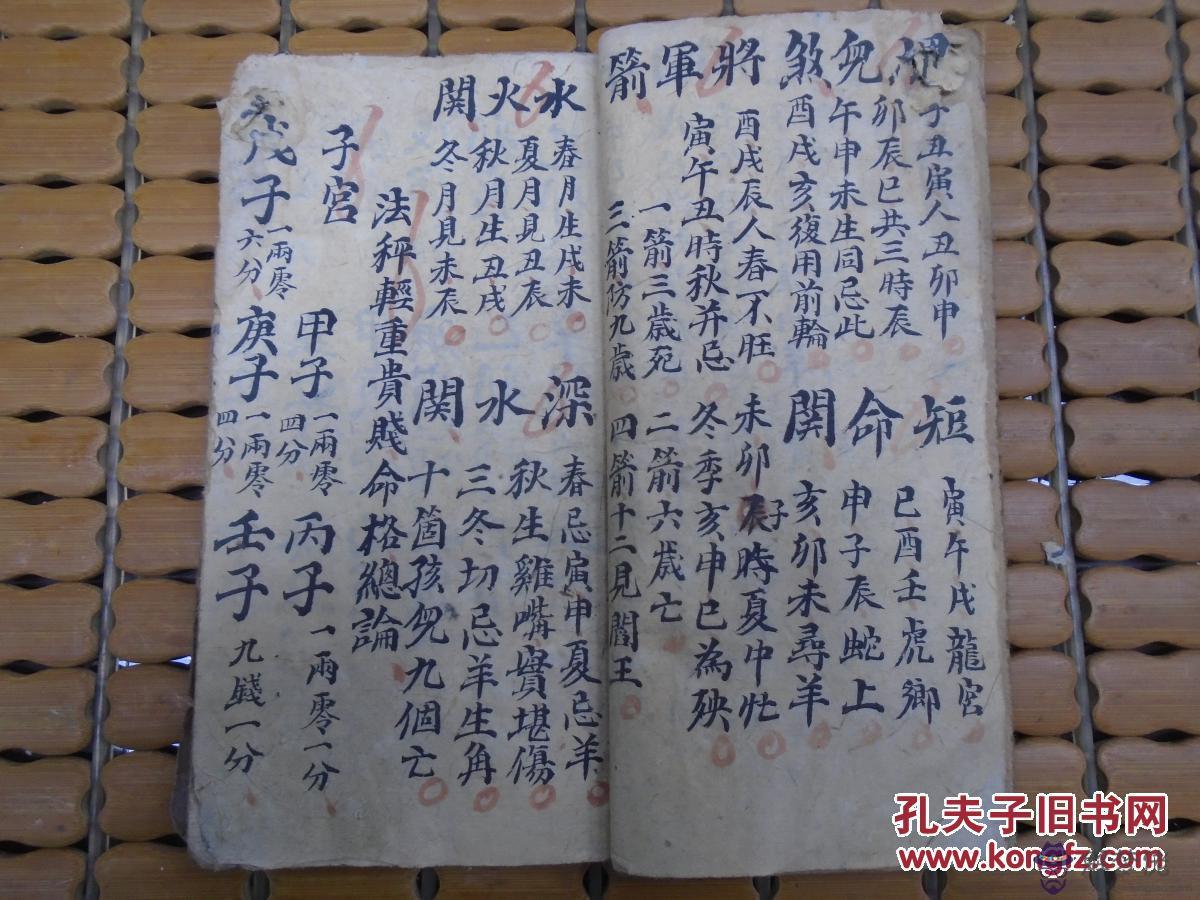 兒煞
子丑寅人丑卯申
卯辰巳共三時辰
午申未生同忌此
酉戌亥復用前輪
短命関
寅午戌龍宮
巳酉壬虎鄉
申子辰蛇上
亥卯未尋羊
將軍箭
酉戌辰人春不旺
未卯子時夏中忙
寅午丑時秋并忌
冬季亥申巳為殃
一箭三歲死
二箭六歲亡
三箭防九歲
四箭十二見閻王
水火関
春月生戌未
夏月見丑辰
秋月生丑戌
冬月見未辰
深水関
春忌寅申夏忌羊
秋生雞嘴實堪傷
三冬切忌羊生角
十箇孩兒九個亡
法秤輕重貴賤命格總論
子宮
甲子 一兩零四分
丙子 一兩零一分
戊子 一兩零六分
庚子 一兩零四分
壬子 九錢一分
孔夫子旧书网
www.kongfz.com